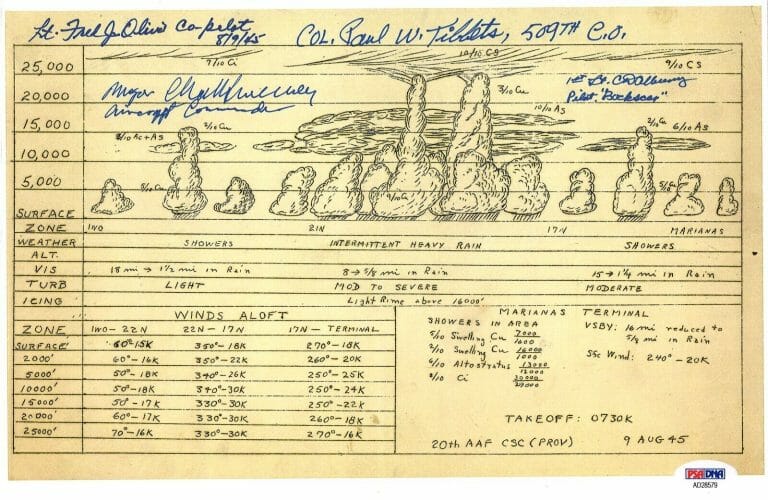 Lt. Fred J. Olivi Co-pilot
8/9/45
COL. Paul W. Tibbets, 509TH C.O.
25,000
7/10 Ci
10/10 CS
9/10 CS
20,000
Major
Aircraft Commander
3/10 Cu
1st Lt. CD Albury
Pilot, "Bockscar"
15,000
10/10 As
3/10 Ac+As
3/10 Cu
2/10 Cu
6/10 As
10,000
5,000
5/10 Cu
9/10 Cu
5/10 Cu
SURFACE
ZONE IWO 21N 17N MARIANAS
WEATHER SHOWERS INTERMITTENT HEAVY RAIN SHOWERS
ALT.
VIS 18 mi → 1 1/2 mi in Rain 8 → 5/8 mi in Rain 15 → 1 1/4 mi in Rain
TURB LIGHT MOD TO SEVERE MODERATE
ICING Light Rime above 16000'
WINDS ALOFT
ZONE IWO - 22N 22N - 17N 17N - TERMINAL
SURFACE 60°-15K 350°-18K 270°-18K
2000' 60°-16K 350°-22K 260°-20K
5000' 50°-18K 340°-26K 250°-25K
10000' 50°-18K 340°-30K 250°-24K
15000' 50°-17K 330°-30K 250°-22K
20000' 60°-17K 330°-30K 260°-18K
25000' 70°-16K 330°-30K 270°-16K
MARIANAS TERMINAL
SHOWERS IN AREA
5/10 Swelling Cu 7000/1600
2/10 Swelling Cu 16000/1000
6/10 Altostratus 13000/12000
Ci
VSBY: 10 mi reduced to
5/8 mi in Rain
Sfc Wind: 240° - 20K
TAKEOFF: 0730K
20th AAF CSC (PROV) 9 AUG 45
PSA DNA
AD28579